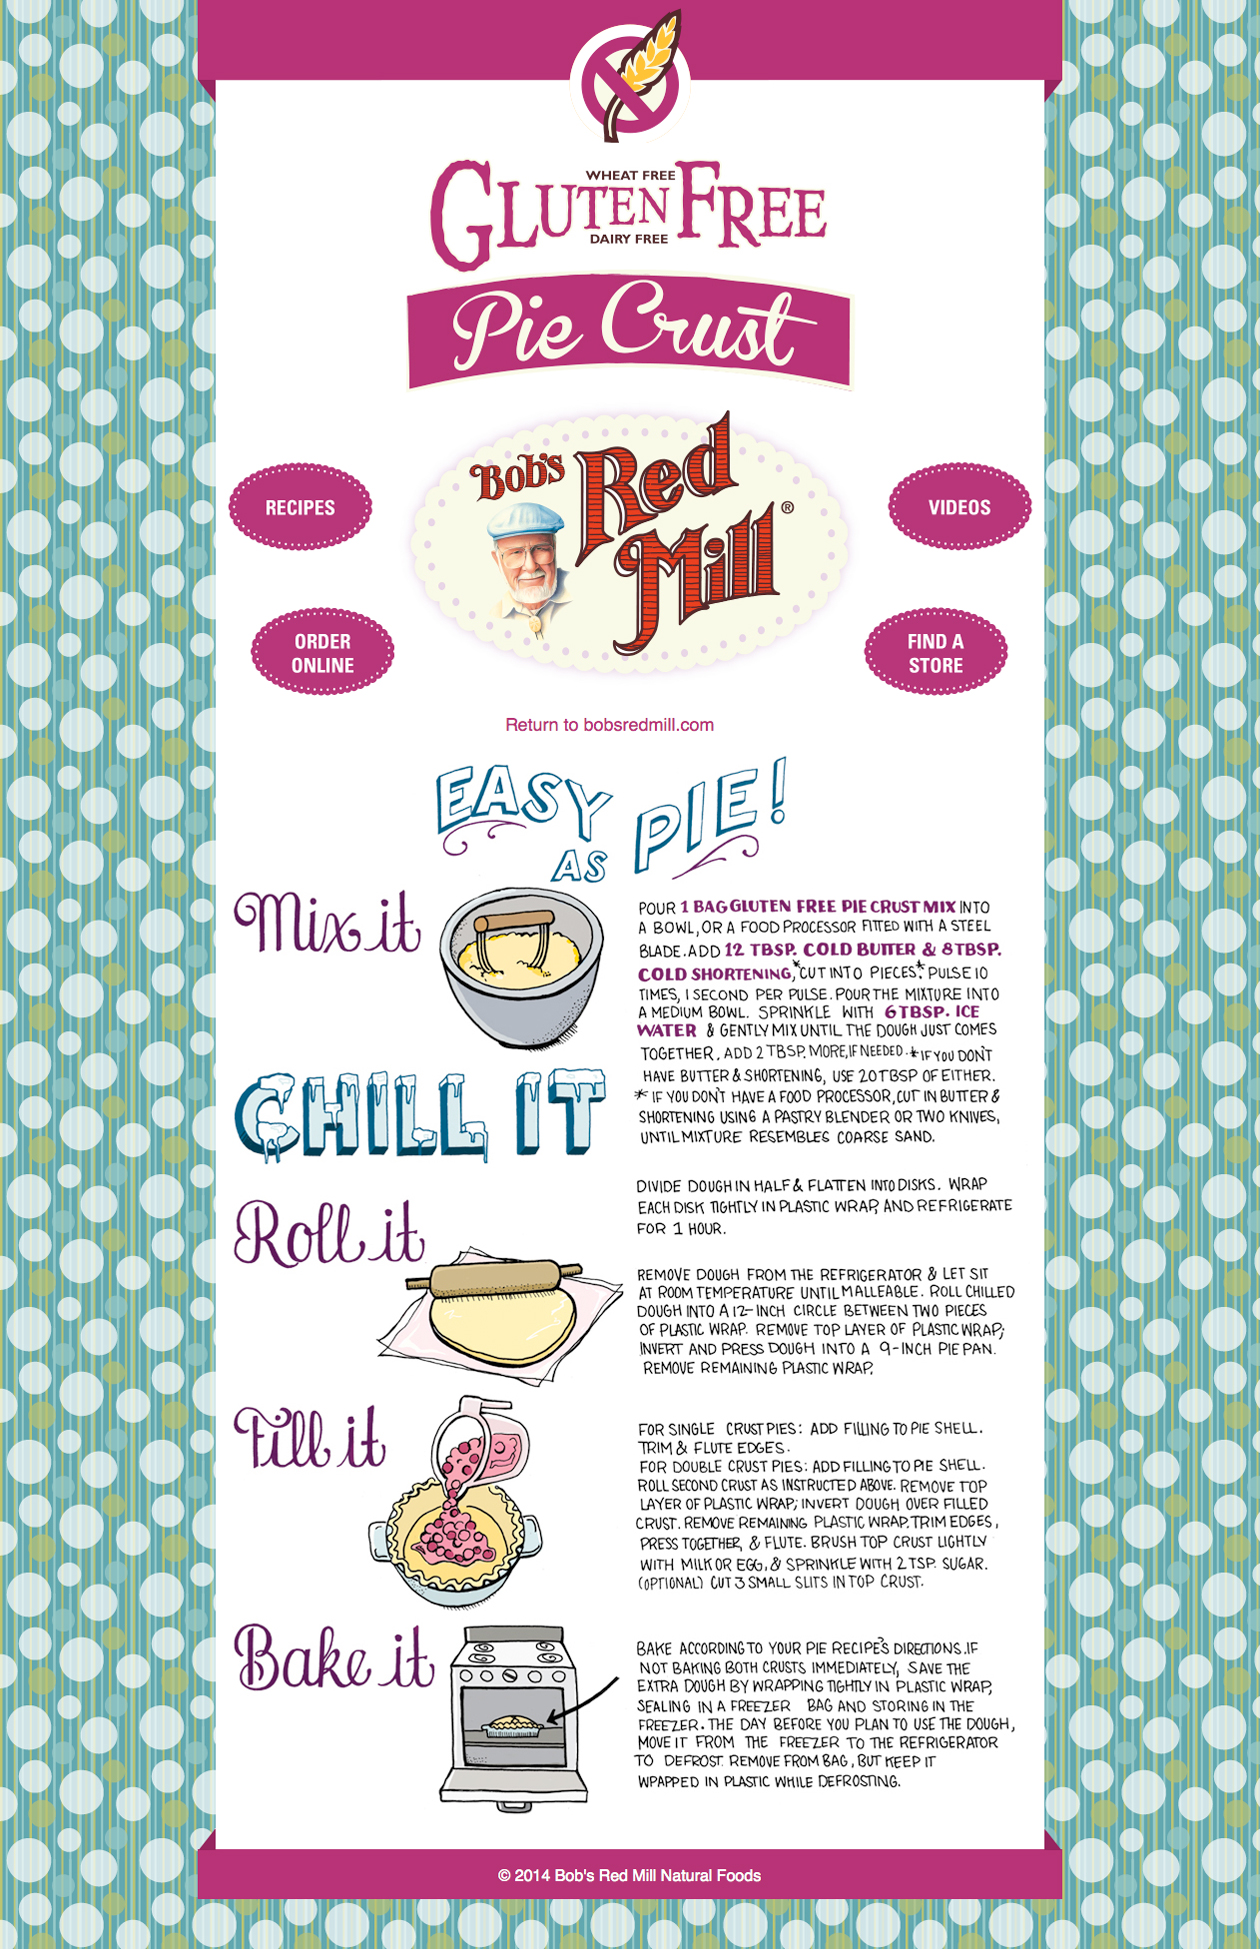 WHEAT FREE
GLUTEN FREE
DAIRY FREE
Pie Crust
Bob's Red Mill®
RECIPES
VIDEOS
ORDER
ONLINE
FIND A
STORE
Return to bobsredmill.com
EASY
AS
PIE!
Mix it
POUR 1 BAG GLUTEN FREE PIE CRUST MIX INTO
A BOWL, OR A FOOD PROCESSOR FITTED WITH A STEEL
BLADE. ADD 12 TBSP. COLD BUTTER & 8 TBSP.
COLD SHORTENING,* CUT INTO PIECES.* PULSE 10
TIMES, 1 SECOND PER PULSE. POUR THE MIXTURE INTO
A MEDIUM BOWL. SPRINKLE WITH 6 TBSP. ICE
WATER & GENTLY MIX UNTIL THE DOUGH JUST COMES
TOGETHER. ADD 2 TBSP. MORE, IF NEEDED. * IF YOU DON'T
HAVE BUTTER & SHORTENING, USE 20 TBSP OF EITHER.
* IF YOU DON'T HAVE A FOOD PROCESSOR, CUT IN BUTTER &
SHORTENING USING A PASTRY BLENDER OR TWO KNIVES,
UNTIL MIXTURE RESEMBLES COARSE SAND.
CHILL IT
DIVIDE DOUGH IN HALF & FLATTEN INTO DISKS. WRAP
EACH DISK TIGHTLY IN PLASTIC WRAP, AND REFRIGERATE
FOR 1 HOUR.
Roll it
REMOVE DOUGH FROM THE REFRIGERATOR & LET SIT
AT ROOM TEMPERATURE UNTIL MALLEABLE. ROLL CHILLED
DOUGH INTO A 12-INCH CIRCLE BETWEEN TWO PIECES
OF PLASTIC WRAP. REMOVE TOP LAYER OF PLASTIC WRAP;
INVERT AND PRESS DOUGH INTO A 9-INCH PIE PAN.
REMOVE REMAINING PLASTIC WRAP.
Fill it
FOR SINGLE CRUST PIES: ADD FILLING TO PIE SHELL.
TRIM & FLUTE EDGES.
FOR DOUBLE CRUST PIES: ADD FILLING TO PIE SHELL.
ROLL SECOND CRUST AS INSTRUCTED ABOVE. REMOVE TOP
LAYER OF PLASTIC WRAP; INVERT DOUGH OVER FILLED
CRUST. REMOVE REMAINING PLASTIC WRAP. TRIM EDGES,
PRESS TOGETHER, & FLUTE. BRUSH TOP CRUST LIGHTLY
WITH MILK OR EGG, & SPRINKLE WITH 2 TSP. SUGAR.
(OPTIONAL) CUT 3 SMALL SLITS IN TOP CRUST.
Bake it
BAKE ACCORDING TO YOUR PIE RECIPE'S DIRECTIONS. IF
NOT BAKING BOTH CRUSTS IMMEDIATELY, SAVE THE
EXTRA DOUGH BY WRAPPING TIGHTLY IN PLASTIC WRAP,
SEALING IN A FREEZER BAG AND STORING IN THE
FREEZER. THE DAY BEFORE YOU PLAN TO USE THE DOUGH,
MOVE IT FROM THE FREEZER TO THE REFRIGERATOR
TO DEFROST. REMOVE FROM BAG, BUT KEEP IT
WPAPPED IN PLASTIC WHILE DEFROSTING.
© 2014 Bob's Red Mill Natural Foods